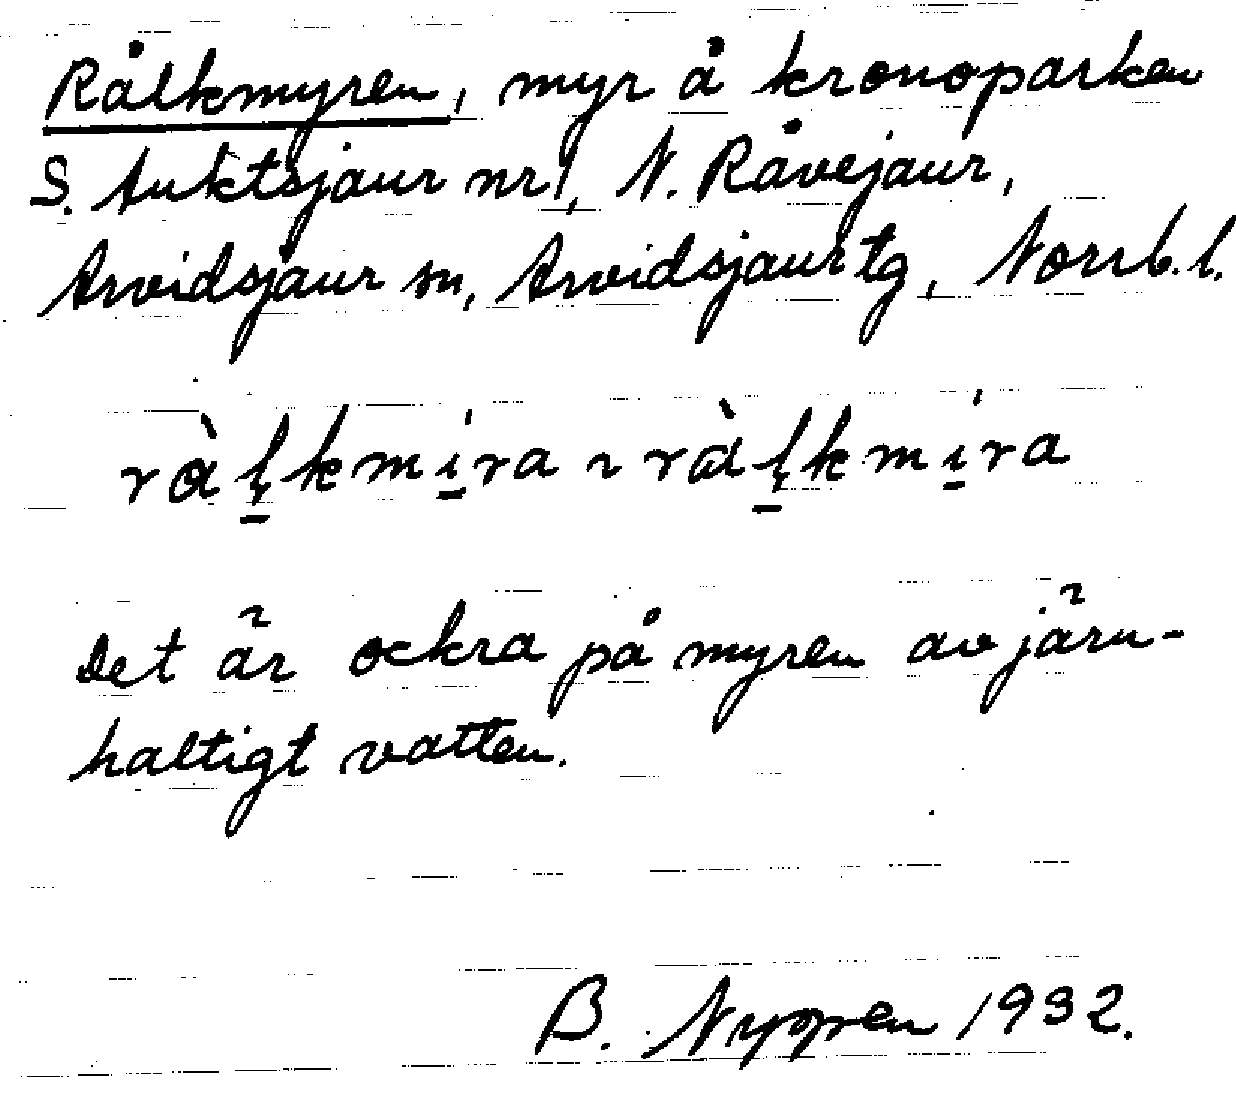 Rålkmyren, myr å kronoparken
S. Auktsjaur nr 1, N. Råvejaur,
Arvidsjaur sn, Arvidsjaur tg, Norrb. l.
ràl̥kmi̱ra ~ ràl̥kmi̱ra
Det är ockra på myren av järn-
haltigt vatten.
B. Nyppen 1932.